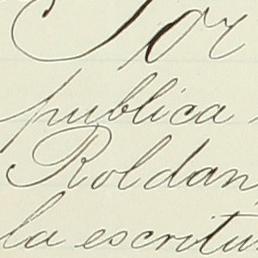 Por
publica
Roldan,
la escritu